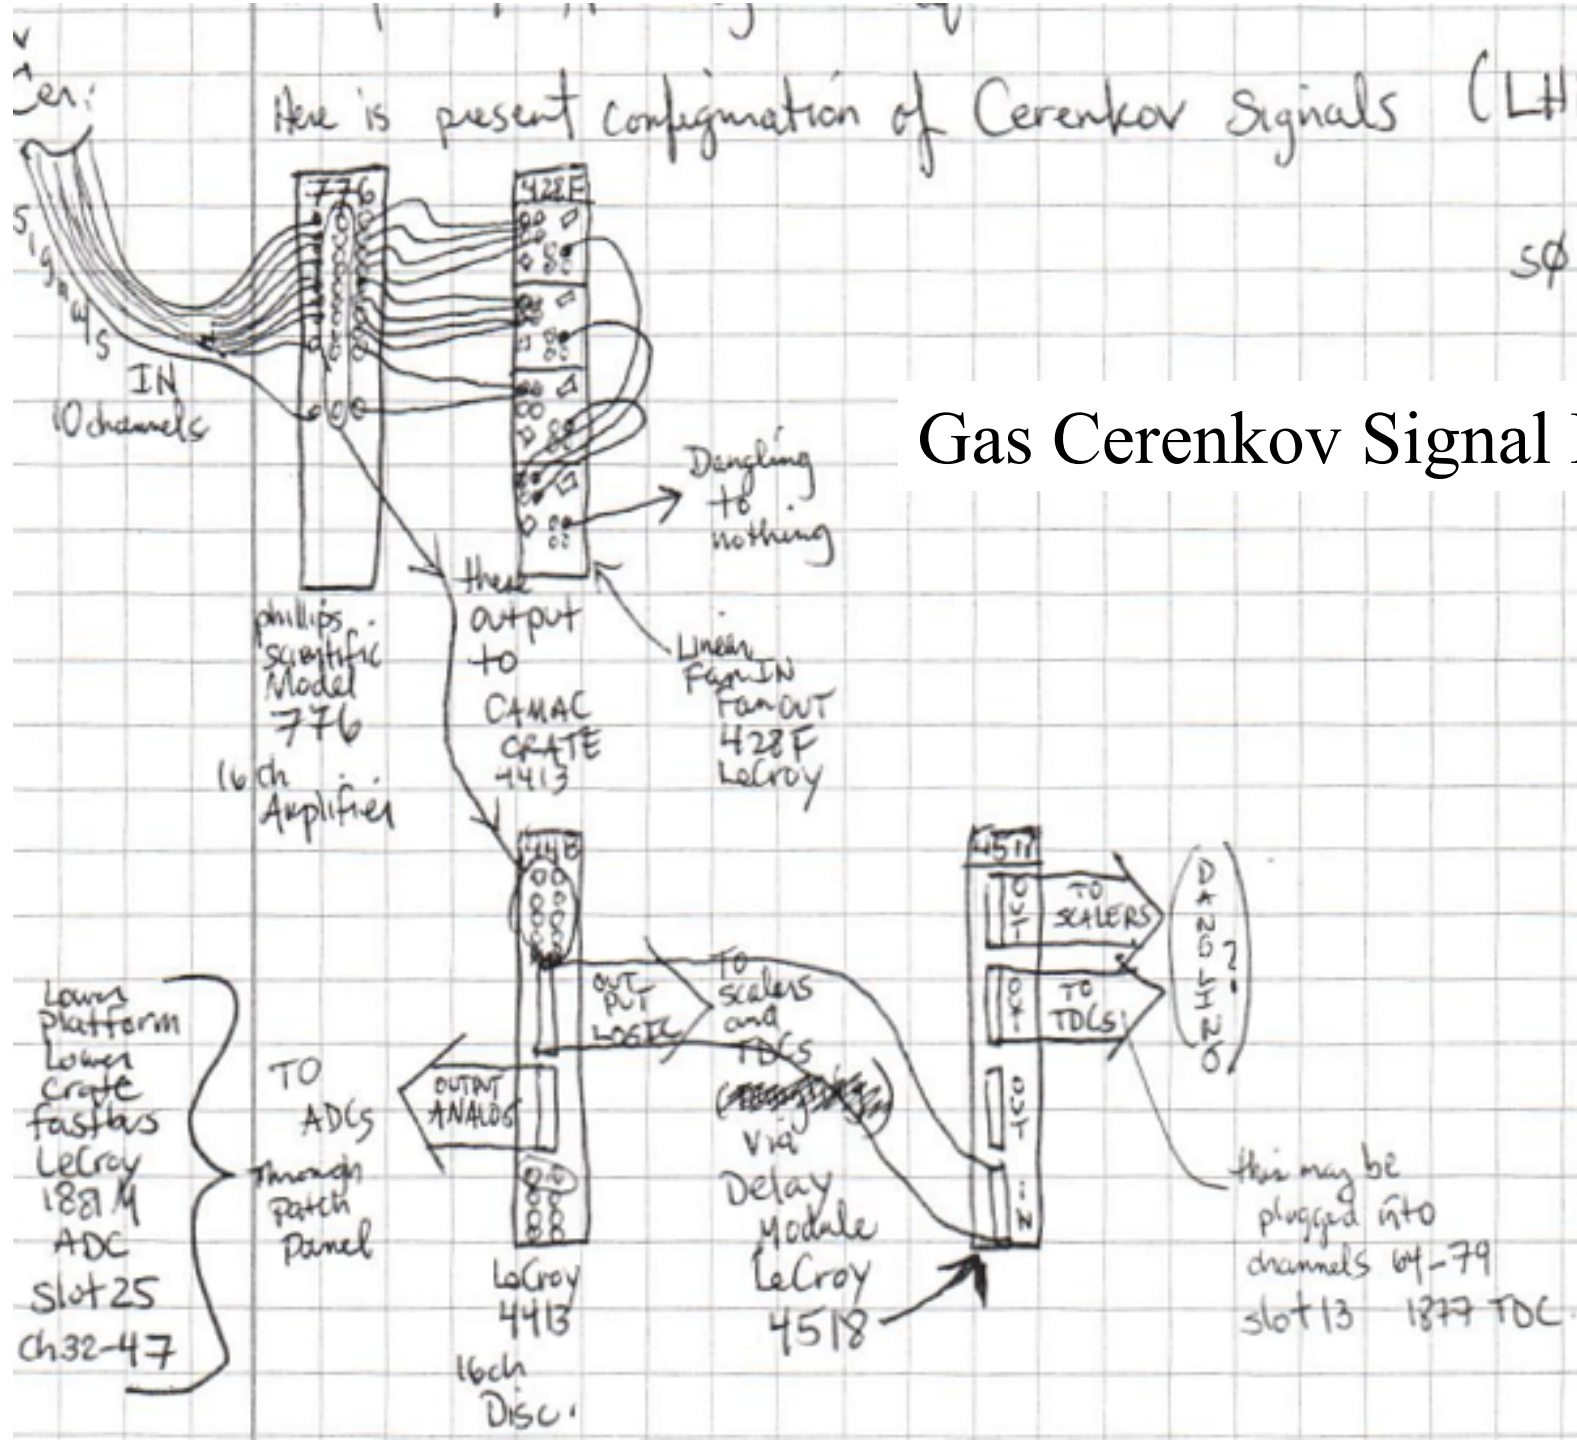 Cer:
Here is present configuration of Cerenkov Signals (LH
776
428F
Signals
IN
10 channels
SØ
Gas Cerenkov Signal
Dangling
to
nothing
these
output
to
CAMAC
CRATE
4413
Linear
Fan IN
Fan OUT
428F
LeCroy
phillips
scientific
Model
776
16 ch
Amplifier
4413
OUT
PUT
LOGIC
TO
scalers
and
TDCS
via
Delay
Module
LeCroy
4518
OUTPUT
ANALOG
TO
ADCs
Through
patch
panel
Lower
platform
Lower
Crate
fastbus
LeCroy
1881M
ADC
slot 25
Ch 32-47
LeCroy
4413
16ch
Disc.
4518
OUT
TO
SCALERS
OUT
TO
TDCs
OUT
IN
DANGLING?
this may be
plugged into
channels 64-79
slot 13 1877 TDC.